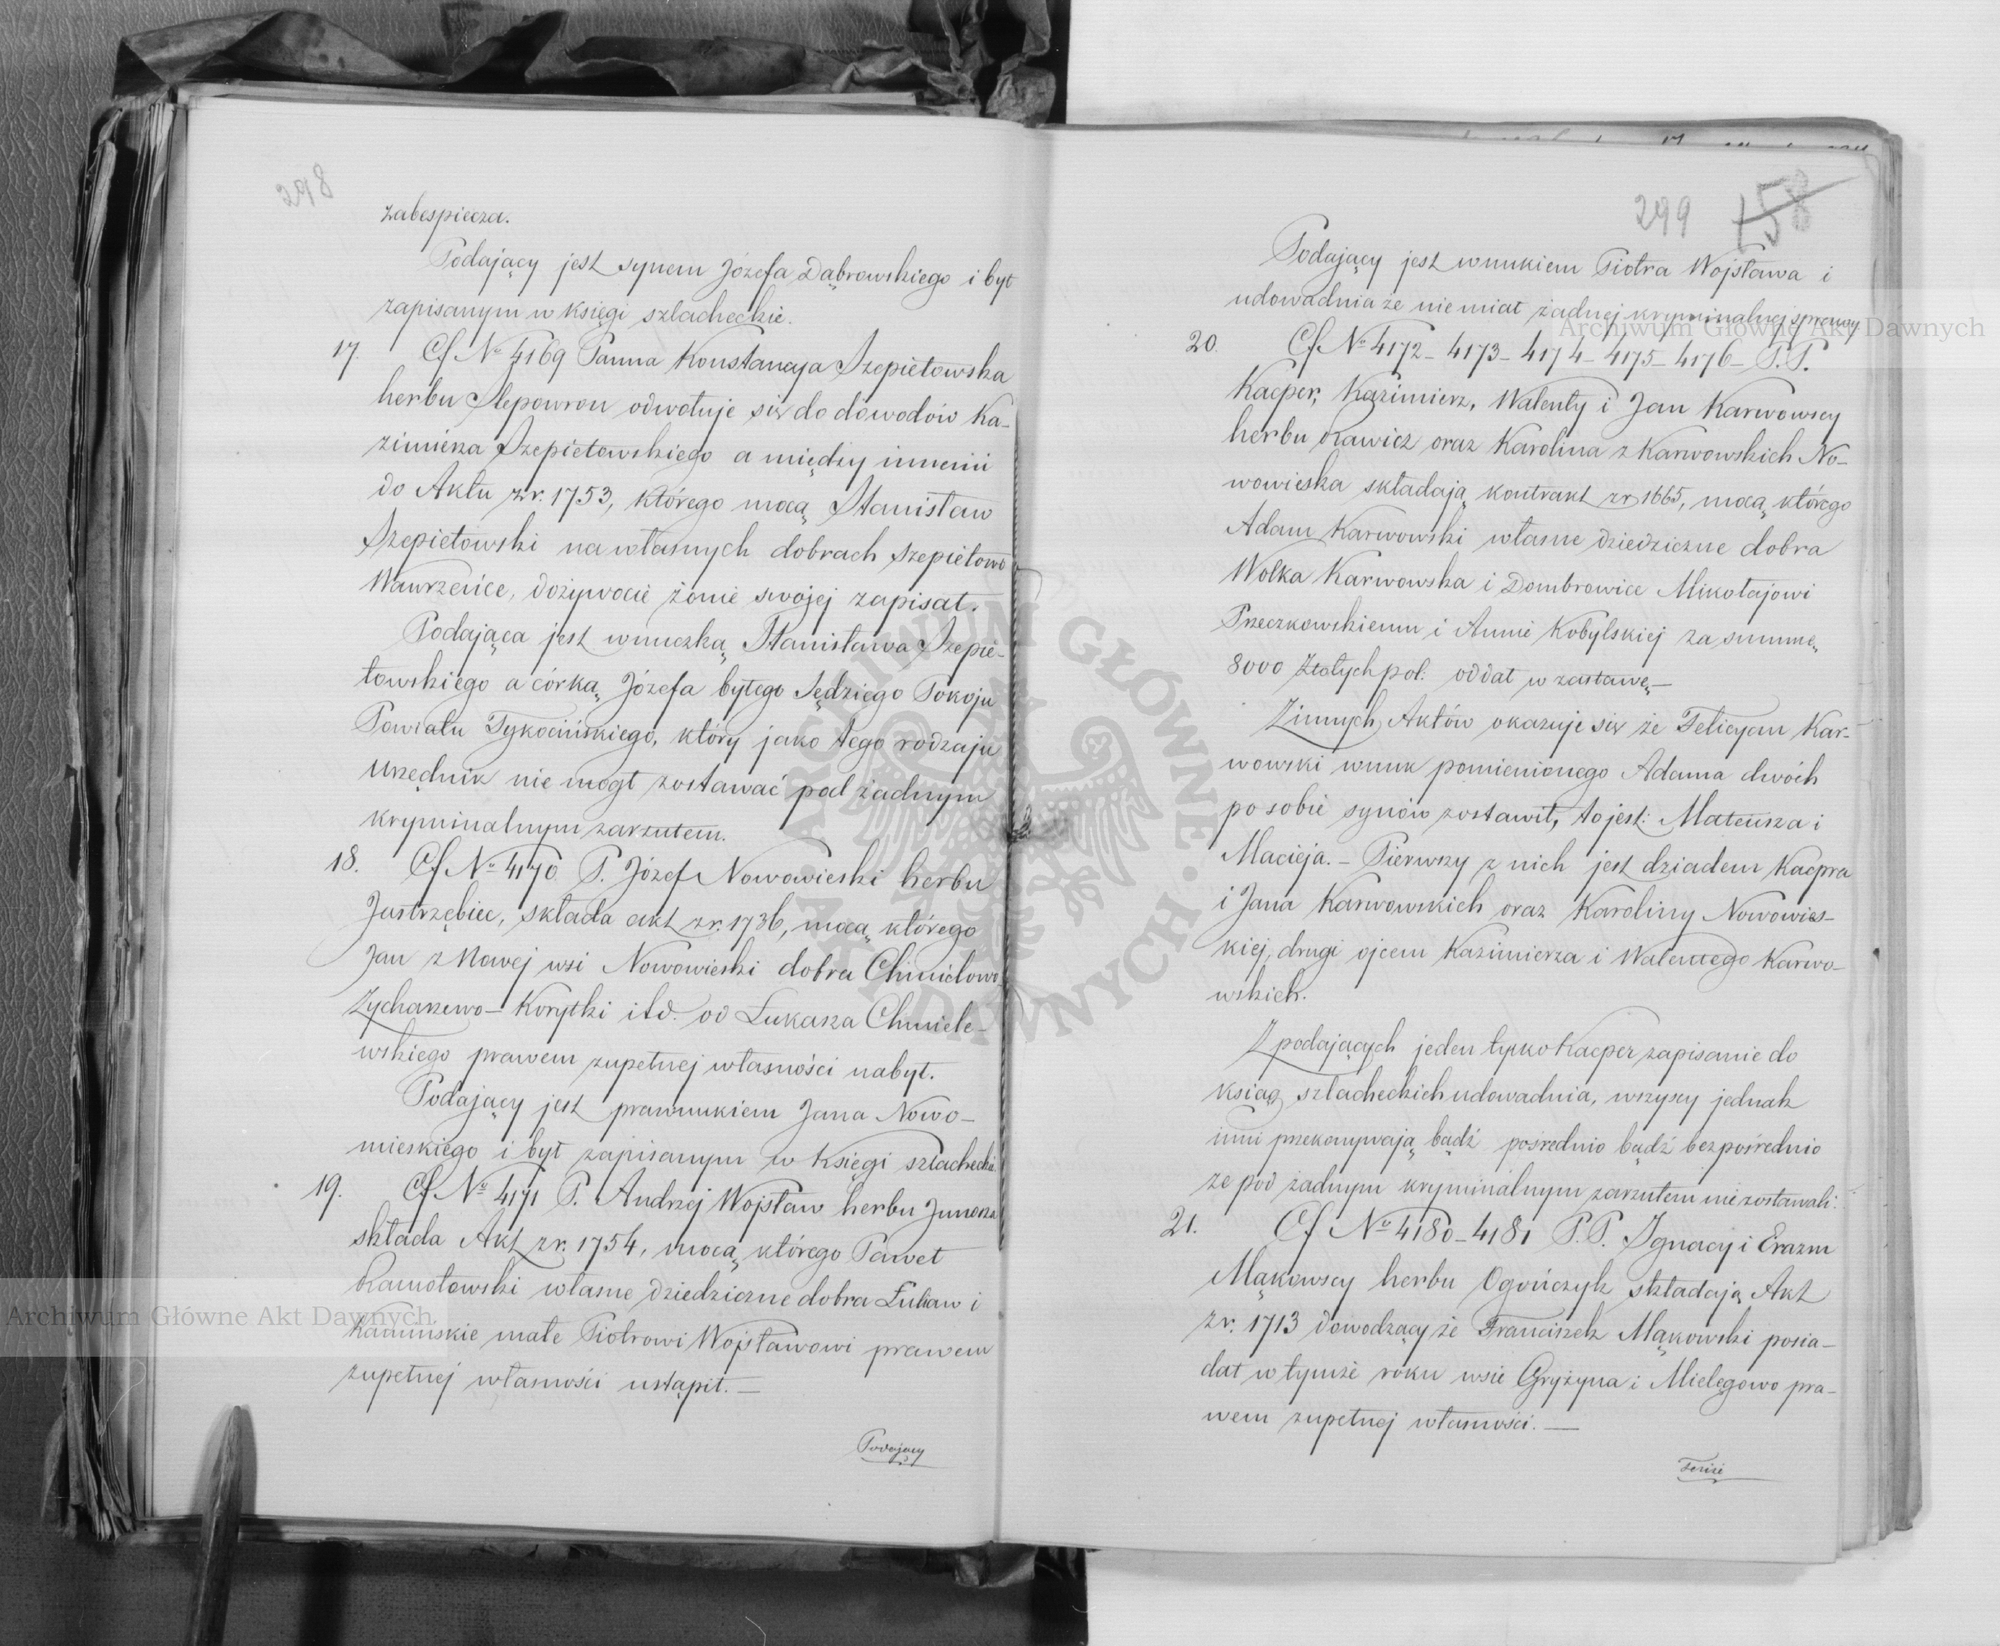 298
zabespiecza.
Podający jest synem Józefa Dąbrowskiego i był
zapisanym w księgi szlacheckie.
17. Cf No 4169 Panna Konstancya Szepietowska
herbu Slepowron odwołuje się do dowodów Ka-
zimierza Szepietowskiego a między innemi
do Aktu z r. 1753, którego mocą Stanisław
Szepietowski na własnych dobrach Szepietowo
Wawrzeńce, dożywocie żonie swojej zapisał.
Podająca jest wnuczką Stanisława Szepie-
towskiego a córką Józefa byłego Sędziego Pokoju
Powiatu Tykocińskiego, który jako tego rodzaju
Urzędnik nie mógł zostawać pod żadnym
kryminalnym zarzutem.
18. Cf No 4170 P. Józef Nowowieski herbu
Jastrzębiec, składa akt z r. 1736, mocą którego
Jan z Nowej wsi Nowowieski dobra Chmielowo
Zycharzewo – Korytki itd. od Łukasza Chmiele-
wskiego prawem zupełnej własności nabył.
Podający jest prawnukiem Jana Nowo-
mieskiego i był zapisanym w księgi szlacheckie
19. Cf No 4171 P. Andrzej Wojsław herbu Junosza
składa Akt z r. 1754, mocą którego Paweł
Ramotowski własne dziedziczne dobra Łukaw i
Kamińskie małe Piotrowi Wojsławowi prawem
zupełnej własności ustąpił. —
Podający
299 158
Podający jest wnukiem Piotra Wojsława i
udowadnia że nie miał żadnej kryminalnej sprawy
20. Cf No 4172 – 4173 – 4174 – 4175 – 4176 – P.P.
Kacper, Kazimierz, Walenty i Jan Karwowscy
herbu Rawicz oraz Karolina z Karwowskich No-
wowieska składają kontrakt z r 1665, mocą którego
Adam Karwowski własne dziedziczne dobra
Wolka Karwowska i Dombrowice Mikołajowi
Przeczkowskiemu i Annie Kobylskiej za summę
8000 Złotych pol: oddał w zastawę —
Z innych Aktów okazuje się że Felicyan Kar-
wowski wnuk pomienionego Adama dwóch
po sobie synów zostawił, to jest: Mateusza i
Macieja. – Pierwszy z nich jest dziadem Kacpra
i Jana Karwowskich oraz Karoliny Nowowies-
kiej, drugi ojcem Kazimierza i Walentego Karwo-
wskich.
Z podających jeden tylko Kacper zapisanie do
ksiąg szlacheckich udowadnia, wszyscy jednak
inni przekonywają bądź pośrednio bądź bezpośrednio
że pod żadnym kryminalnym zarzutem nie zostawali:
21. Cf No 4180 – 4181 P.P. Ignacy i Erazm
Mąkowscy herbu Ogończyk składają Akt
z r. 1713 dowodzący że Franciszek Mąkowski posia-
dał w tymże roku wsie Gryżyna i Mielęgowo pra-
wem zupełnej własności. —
Tenże
Archiwum Główne Akt Dawnych
Archiwum Główne Akt Dawnych
ARCHIWUM GŁÓWNE AKT DAWNYCH